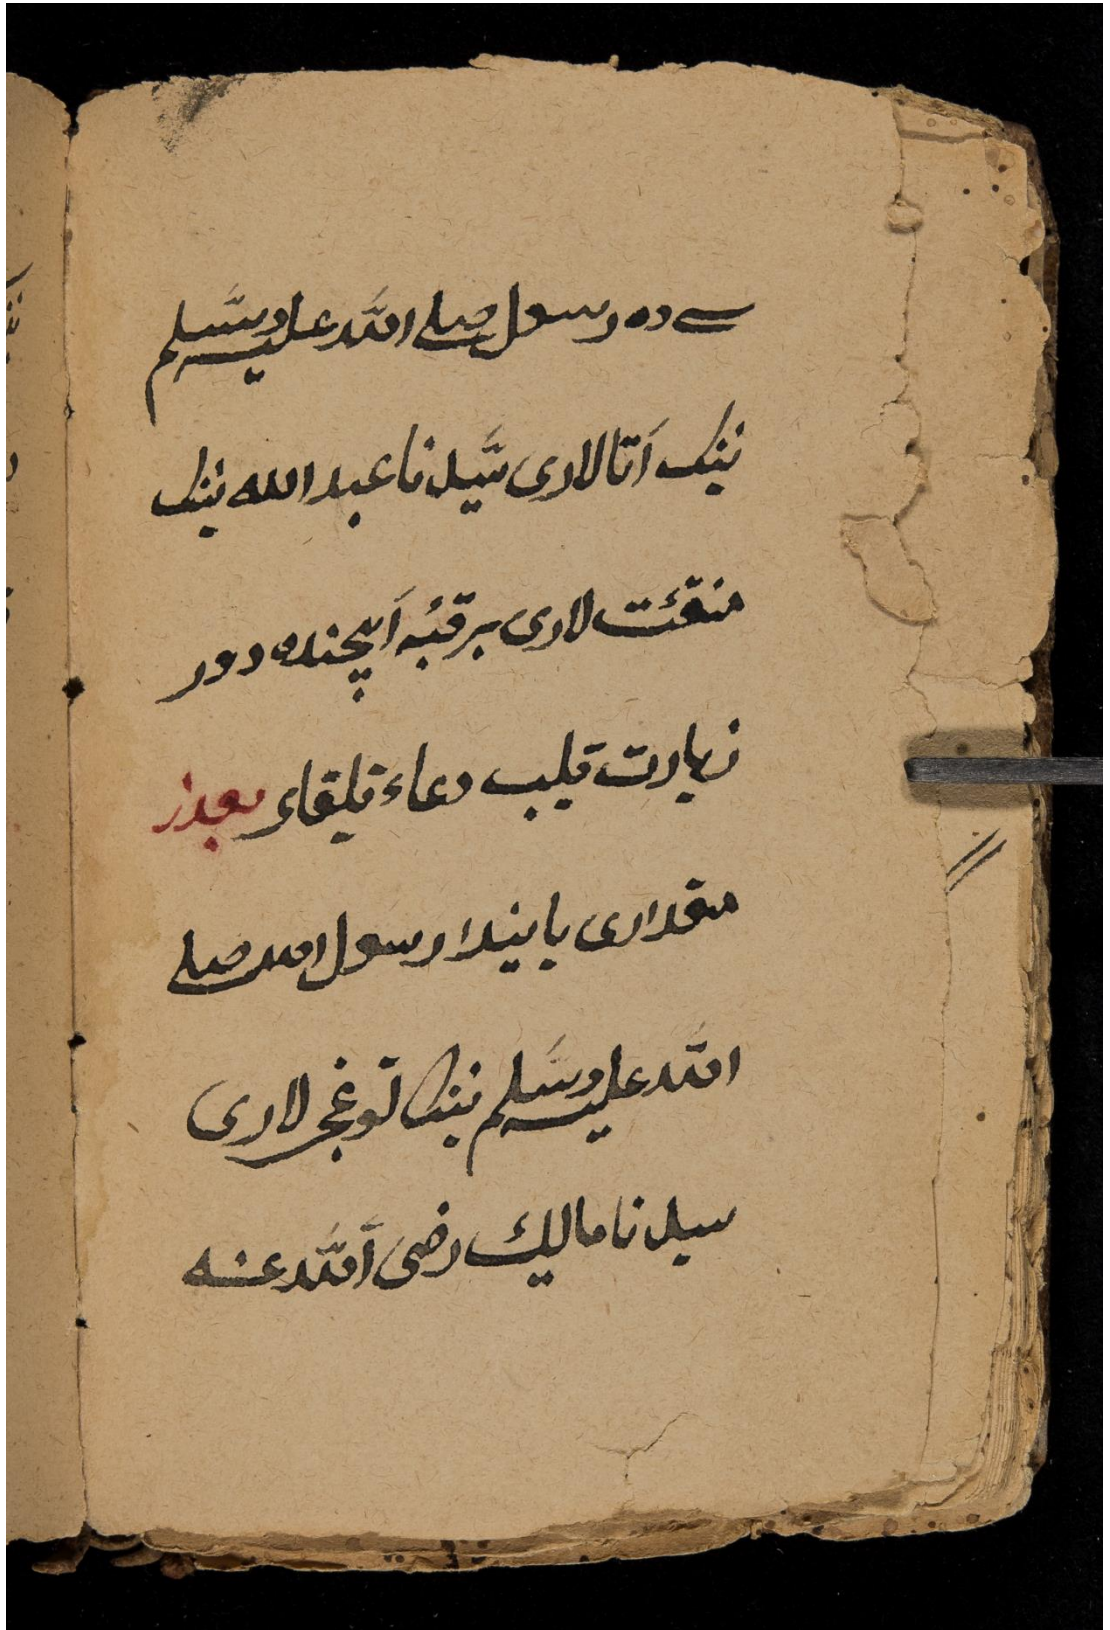 سے ده رسول صلے الله عليه وسَّلم
ننک اَتالاری سَّيدنا عبد الله ننک
منقئت لاری برقبُه اَيچنده دور
زيارت قيلب دعاء قيلقای بعدز
مقداری باينيدا رسول الله صلے
الله عليه وسَلم ننک توغجی لاری
سيدنا ماليك رضی اَلله عنه